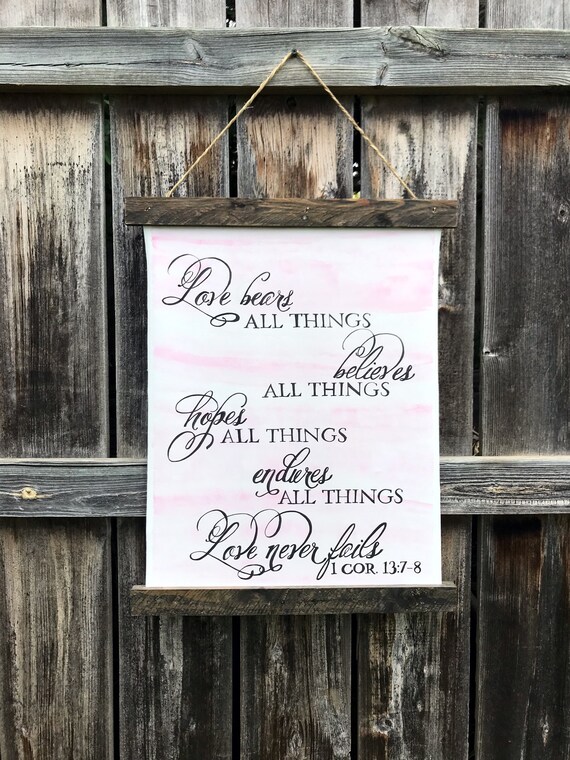 Love bears
ALL THINGS
believes
ALL THINGS
hopes
ALL THINGS
endures
ALL THINGS
Love never fails
1 COR. 13:7-8